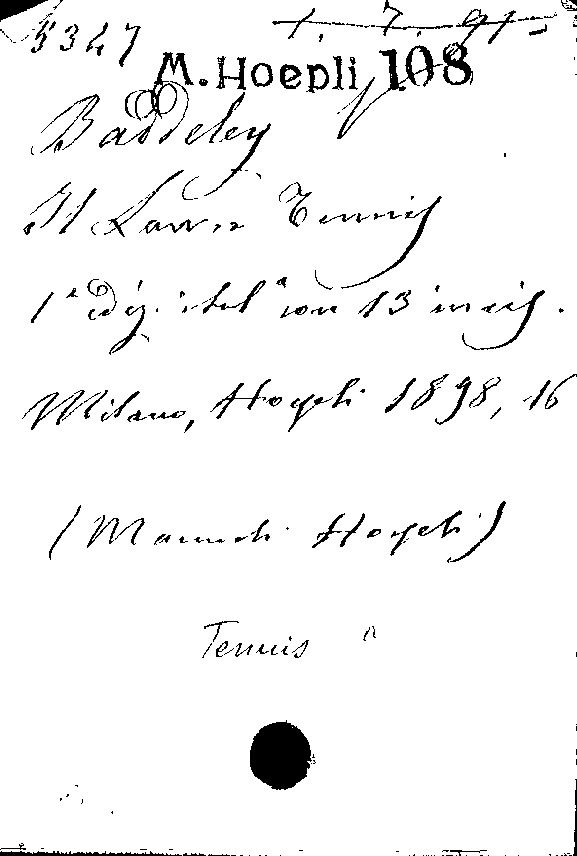 5347 1. 7. 91.
M. Hoepli 108
Baddeley
Il Lawn Tennis
1ª ediz. ital. con 13 incis.
Milano, Hoepli 1898, 16
(Manuali Hoepli)
Tennis